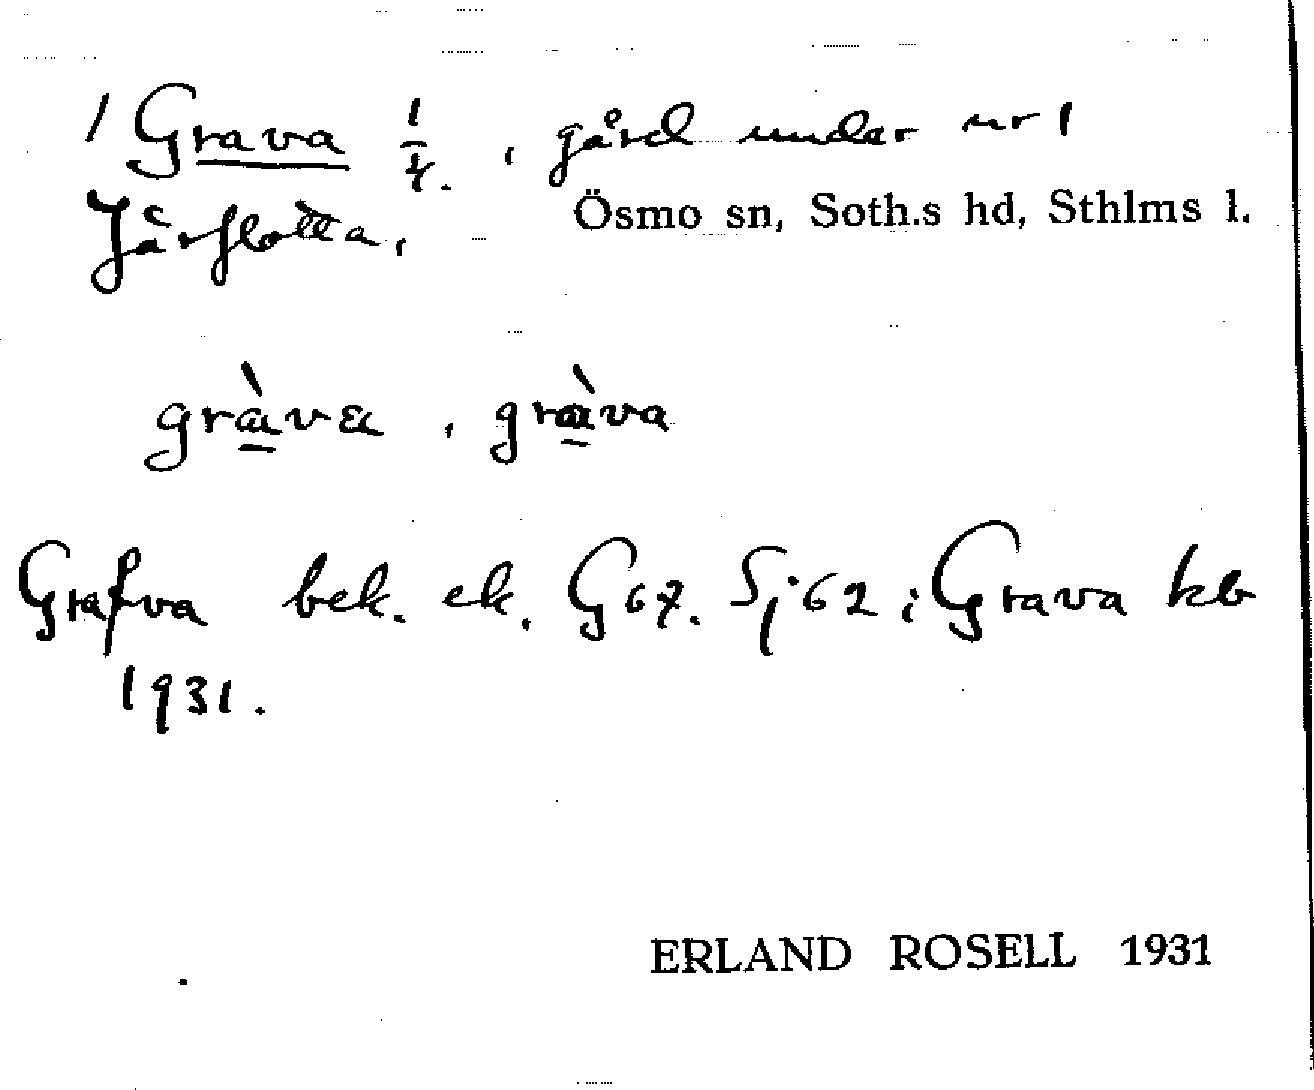 1 Grava 1/4. , gård under nr 1
Järflotta, Ösmo sn, Soth.s hd, Sthlms l.
gràva , gràva
Grafva bek. ek. G67. Sj62; Grava kb
1931.
ERLAND ROSELL 1931